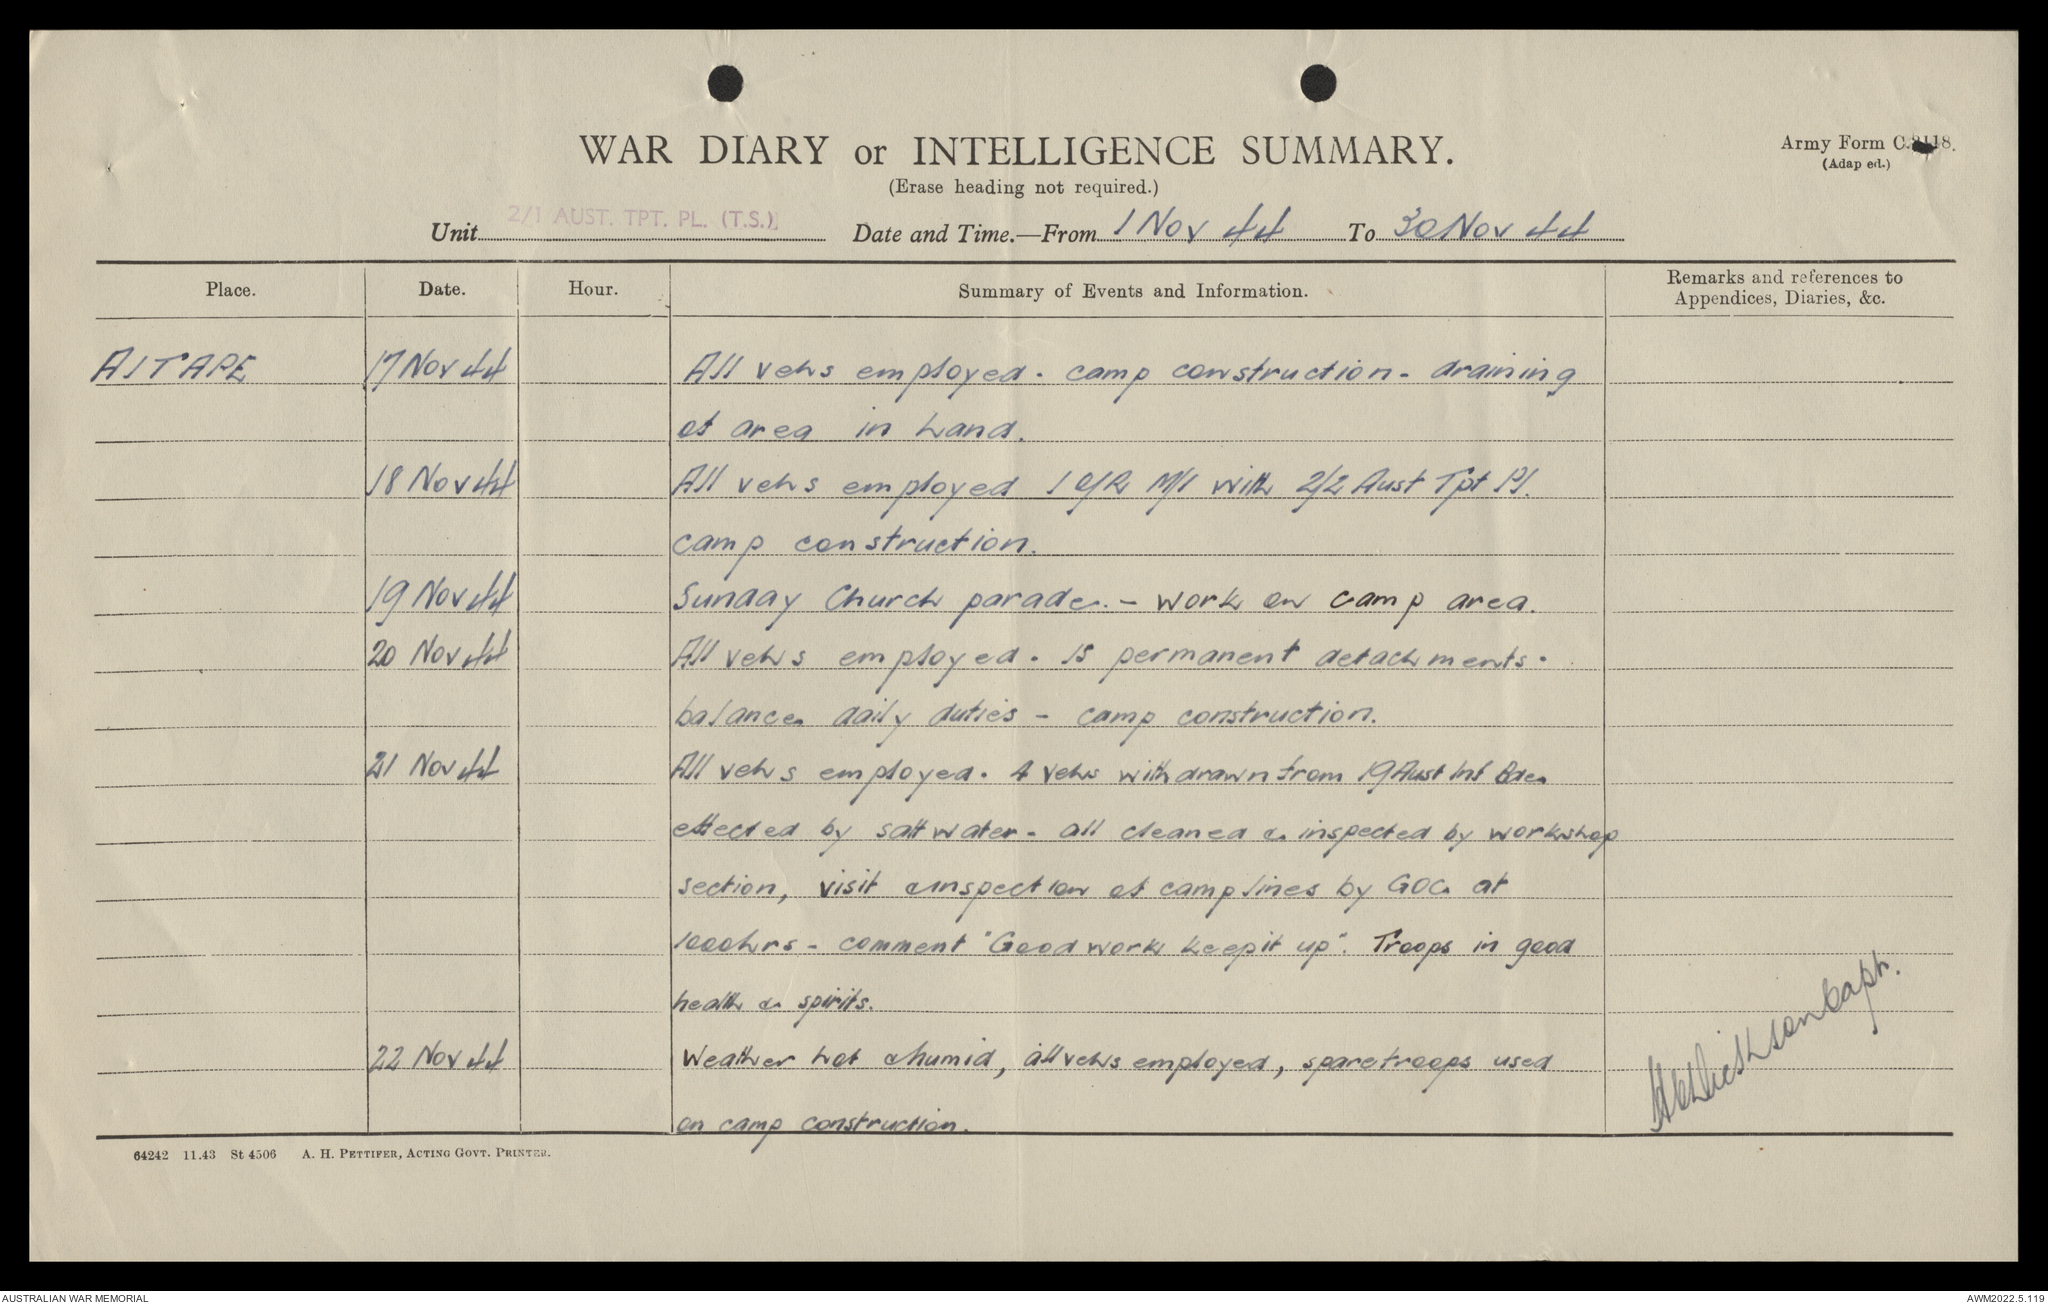 WAR DIARY or INTELLIGENCE SUMMARY.
Army Form C.2118.
(Adap ed.)
(Erase heading not required.)
Unit 2/1 AUST. TPT. PL. (T.S.) Date and Time.—From 1 Nov 44 To 30 Nov 44
Place. Date. Hour. Summary of Events and Information. Remarks and references to
Appendices, Diaries, &c.
AITAPE 17 Nov 44 All vehs employed. camp construction - draining
of area in hand.
18 Nov 44 All vehs employed 1 O/R M/I with 2/2 Aust Tpt Pl.
camp construction.
19 Nov 44 Sunday Church parade. - work on camp area.
20 Nov 44 All vehs employed. 15 permanent detachments.
balance daily duties - camp construction.
21 Nov 44 All vehs employed. 4 vehs withdrawn from 19 Aust Inf Bde
effected by salt water - all cleaned & inspected by workshop
section, visit & inspection of camp lines by GOC at
1000hrs - comment "Good work keep it up". Troops in good
health & spirits.
22 Nov 44 Weather hot & humid, all vehs employed, spare troops used
on camp construction.
Capt.
64242 11.43 St 4506 A. H. PETTIFER, ACTING GOVT. PRINTER.
AUSTRALIAN WAR MEMORIAL
AWM2022.5.119